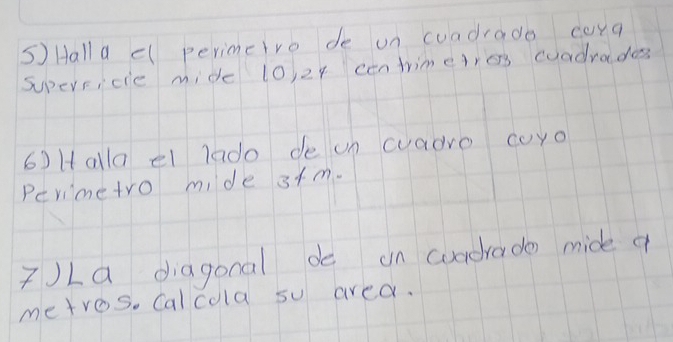 5) Halla el perimetro de un cuadrado cuya
superficie mide 10,24 centrimetros cuadrados
6) Halla el lado de un cuadro cuyo
Perimetro mide 34 m.
7) La diagonal de un cuadrado mide 9
metros. Calcula su area.